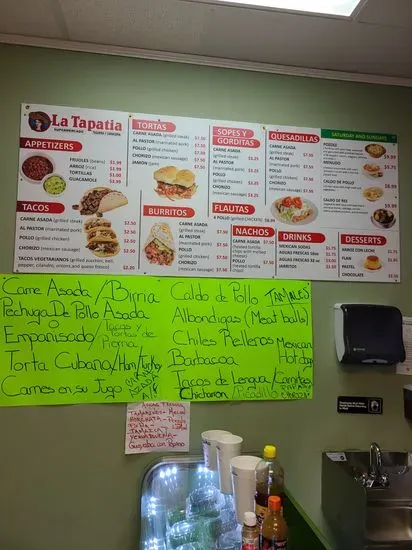 La Tapatia
SUPERMERCADO
APPETIZERS
FRIJOLES (beans) $1.99
ARROZ (rice) $1.99
TORTILLAS $1.00
GUACAMOLE $3.99
TACOS
CARNE ASADA (grilled steak) $2.50
AL PASTOR (marinated pork) $2.50
POLLO (grilled chicken) $2.50
CHORIZO (mexican sausage) $2.50
TACOS VEGETARIANOS (grilled zucchini, bell
peper, cilandro, onions,and queso fresco) $2.20
TORTAS
CARNE ASADA (grilled steak) $7.50
AL PASTOR (marinated pork) $7.50
POLLO (grilled chicken) $7.50
CHORIZO (mexican sausage) $7.50
JAMON (ham)
BURRITOS
CARNE ASADA
(grilled steak) $7.50
AL PASTOR
(marinated pork) $7.50
POLLO
(grilled chicken) $7.50
CHORIZO
(mexican sausage) $7.50
SOPES Y
GORDITAS
CARNE ASADA
(grilled steak) $3.25
AL PASTOR
(marinated pork) $3.25
POLLO
(grilled chicken) $3.25
CHORIZO
(mexican sausage) $3.25
FLAUTAS
4 POLLO (grilled CHICKEN)
NACHOS
CARNE ASADA
(grilled tortilla
chips with melted
cheese)
POLLO
(grilled tortilla
chips)
QUESADILLAS
CARNE ASADA
(grilled steak) $7.50
AL PASTOR
(marinated pork) $7.50
POLLO
(grilled chicken) $7.50
CHORIZO
(mexican sausage) $7.50
DRINKS
MEXICAN SODAS $1.75
AGUAS FRESCAS 16oz $1.75
AGUAS FRESCAS 32 oz
JARRITOS
SATURDAY AND SUNDAYS
POZOLE
MENUDO
CALDO DE POLLO
CALDO DE RES
DESSERTS
ARROS CON LECHE
FLAN
PASTEL
CHURROS
Carne Asada/Birria
Pechuga De Pollo Asada
o
Empanisado/Tacos y Tortas de Pierna
Torta Cubana/Ham/Turkey
Carnes en su Jugo
Caldo de Pollo TAMALES
Albondigas (Meat balls)
Chiles Rellenos Mexican
Barbacoa Hot dogs
Tacos de Lengua/Carnitas
Chicharon Picadillo
AGUAS FRESCAS
TAMARINDO - MELON
HORCHATA - Fresa
PIÑA -
JAMAICA
YERBABUENA -
Guanabana con Pepino